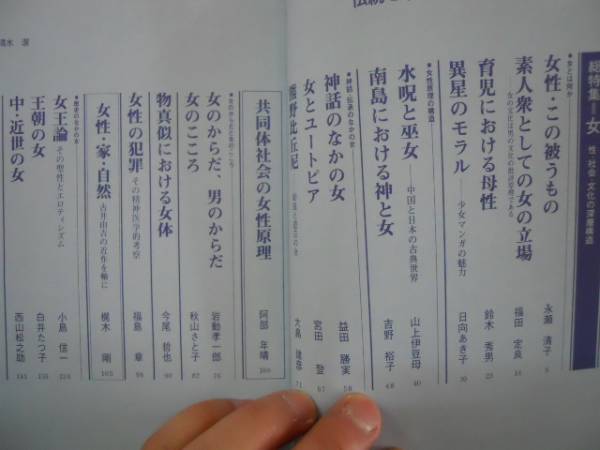 総特集=女 性・社会・文化の深層構造
●女とは何か
女性・この被うもの 永瀬 清子
素人衆としての女の立場 ――女の文化は男の文化の批評原理である 福田 定良
育児における母性 鈴木 秀男 25
異星のモラル ――少女マンガの魅力 日向あき子
●女性原理の構造
水呪と巫女 ――中国と日本の古典世界 山上伊豆母 40
南島における神と女 吉野 裕子 48
●神話・伝承のなかの女
神話のなかの女 益田 勝実 58
女とユートピア 宮田 登
熊野比丘尼 大島 建彦 71
共同体社会の女性原理 阿部 年晴
女のからだ、男のからだ 岩動孝一郎
女のこころ 秋山さと子 82
物真似における女体 今尾 哲也
女性の犯罪 その精神医学的考察 福島 章
女性・家・自然 古井由吉の近作を軸に 梶木 剛
●歴史のなかの女
女王論 その聖性とエロティシズム 小島 信一
王朝の女 白井たつ子
中・近世の女 西山松之助